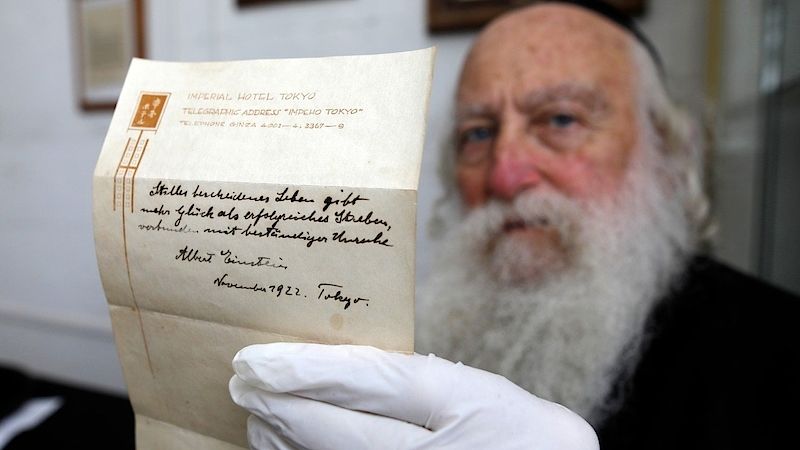 IMPERIAL HOTEL TOKYO
TELEGRAPHIC ADDRESS "IMPEHO TOKYO"
TELEPHONE GINZA 4001—4, 3367—8
Stilles bescheidenes Leben gibt
mehr Glück als erfolgreiches Streben,
verbunden mit beständiger Unruhe
Albert Einstein
November 1922. Tokyo.